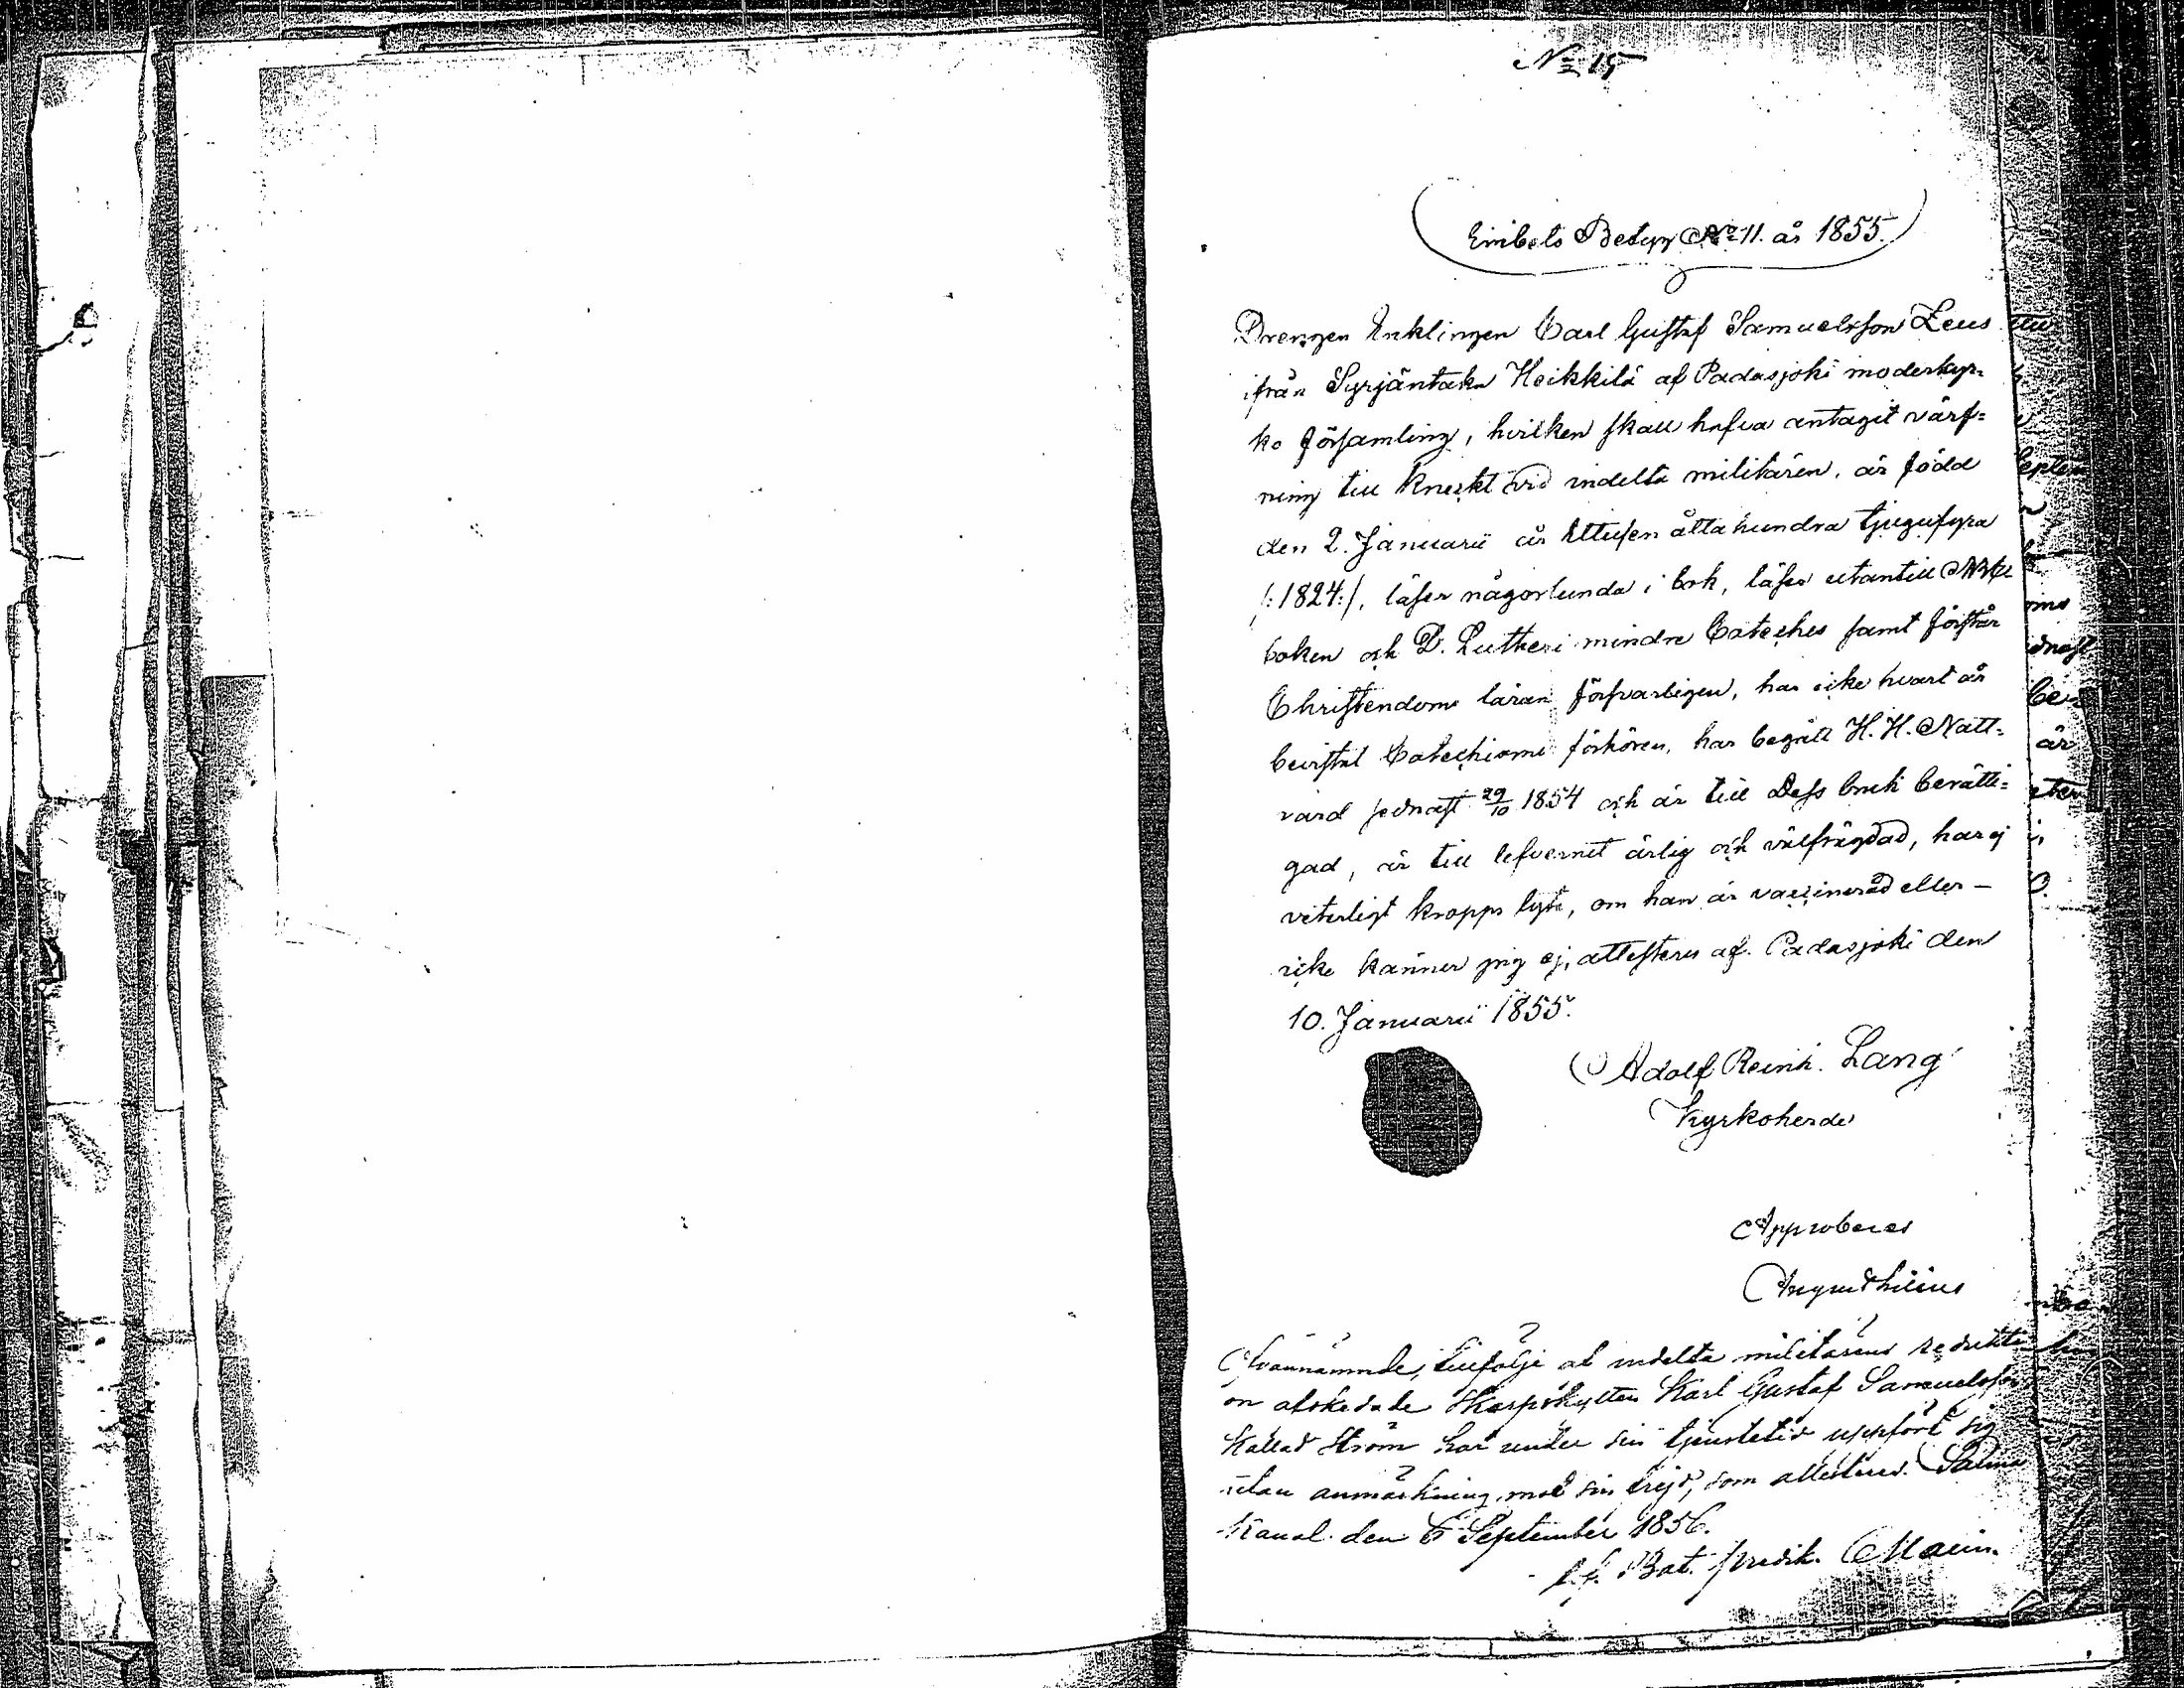 № 15
Embets Betyg № 11. år 1855.
Drengen Enklingen Carl Gustaf Samuelsson Zeus
ifrån Syrjäntaka Heikkilä af Padasjoki moderkyr-
ko församling, hvilken skall hafva antagit värf-
ning till knekt vid indelta militären, är född
den 2. Januarii år Ettusen åttahundra tjugufyra
/:1824:/, läser någorlunda i bok, läser utantill ABC
boken och D. Lutheri mindre Cateches samt förstår
Christendoms läran försvarligen, har icke hvart år
bevistat Catechismi förhören, har begått H. H. Natt-
vard sednast 29/10 1854 och är till Dess bruk berätti-
gad, är till lefvernet ärlig och välfrägdad, har ej
veterligt kropps lyte, om han är vaccinerad eller –
icke känner jag ej, attesteres af. Padasjoki den
10. Januarii 1855.
Adolf Reinh. Lang
Kyrkoherde
Approberas
Ofvannämnde, tillfölje af indelta militärens redukti-
on afskedade Skarpskytten Karl Gustaf Samuelsson
kallad Ström har under sin tjenstetid uppfört sig
utan anmärkning mot sin frejd, som attesteras. Saima
Kanal den 6 September 1856.
Bat. predik.